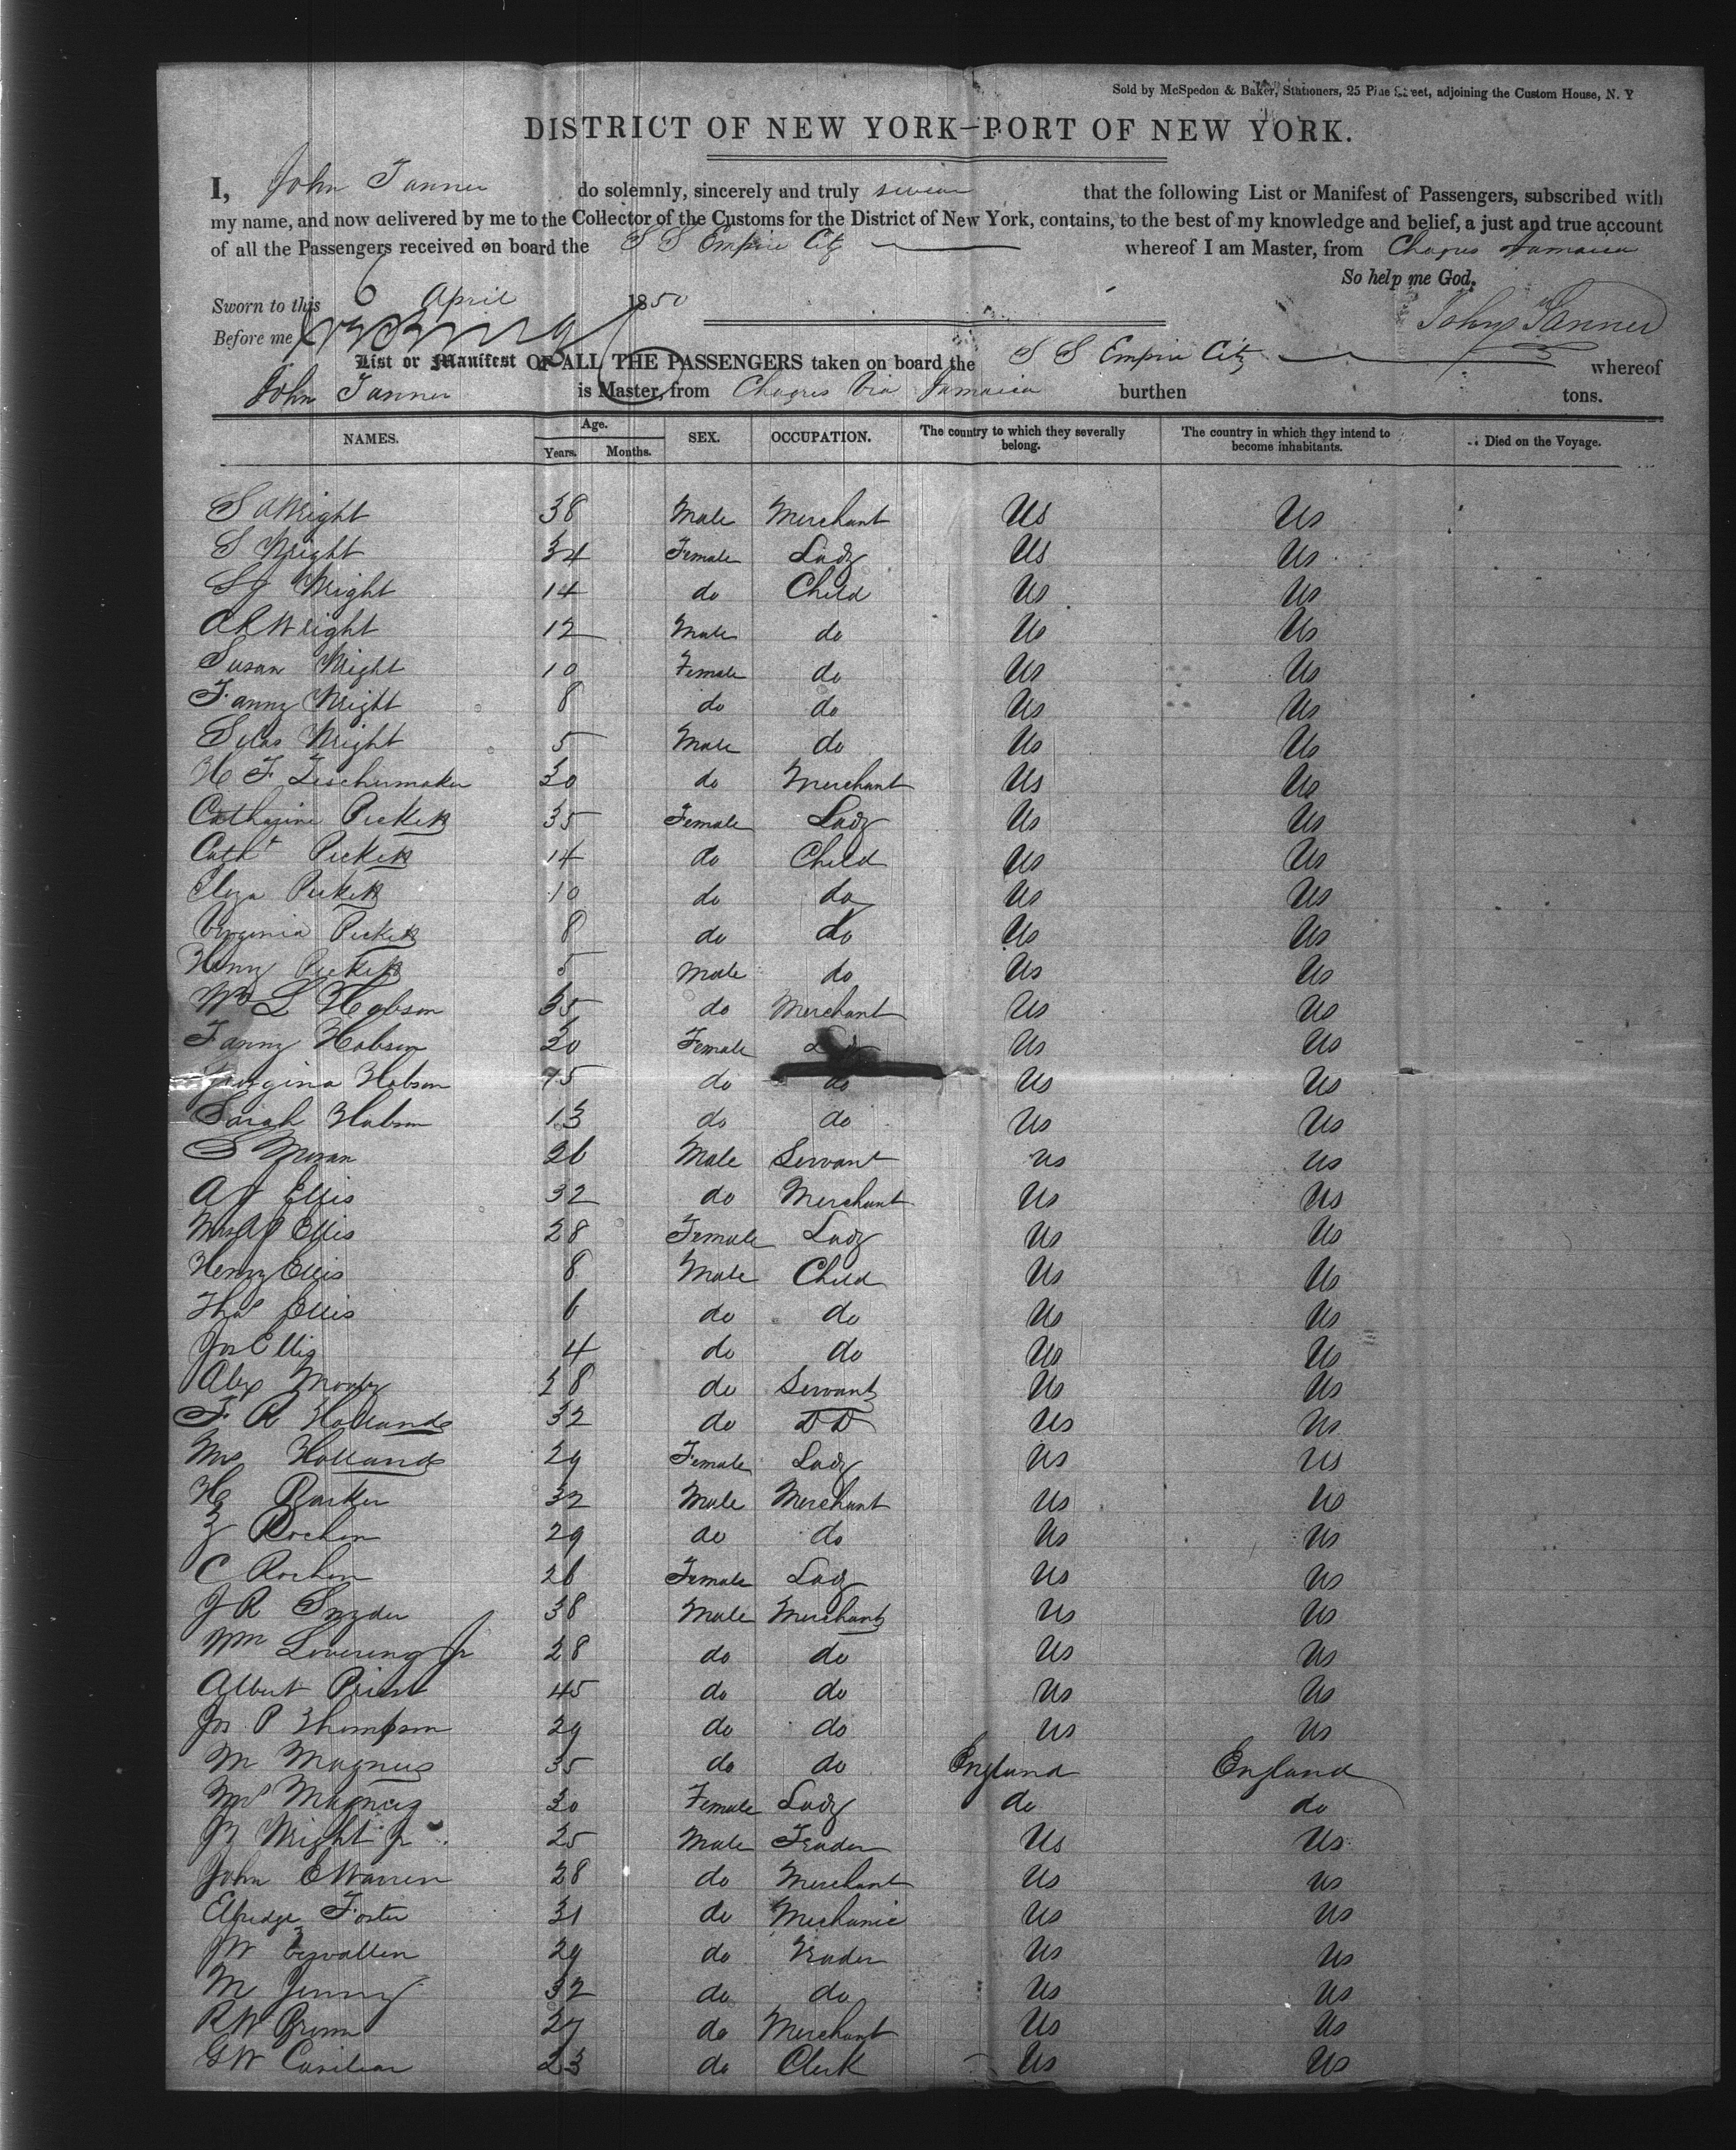 Sold by McSpedon & Baker, Stationers, 25 Pine Street, adjoining the Custom House, N. Y
DISTRICT OF NEW YORK—PORT OF NEW YORK.
I, John Tanner do solemnly, sincerely and truly swear that the following List or Manifest of Passengers, subscribed with
my name, and now delivered by me to the Collector of the Customs for the District of New York, contains, to the best of my knowledge and belief, a just and true account
of all the Passengers received on board the S S Empire City whereof I am Master, from Chagres Jamaica
So help me God.
Sworn to this 6 April 1850
John Tanner
Before me
List or Manifest OF ALL THE PASSENGERS taken on board the S S Empire City whereof
John Tanner is Master, from Chagres Via Jamaica burthen tons.
NAMES. Age. Years. Months. SEX. OCCUPATION. The country to which they severally belong. The country in which they intend to become inhabitants. Died on the Voyage.
S Wright 38 Male Merchant Us Us
S Wright 34 Female Lady Us Us
S J Wright 14 do Child Us Us
A R Wright 12 Male do Us Us
Susan Wright 10 Female do Us Us
Fanny Wright 8 do do Us Us
Silas Wright 5 Male do Us Us
H F Teschermaker 30 do Merchant Us Us
Catharine Pickett 35 Female Lady Us Us
Cath Pickett 14 do Child Us Us
Eliza Pickett 10 do do Us Us
Virginia Pickett 8 do do Us Us
Henry Pickett 5 Male do Us Us
Wm L Hobson 35 do Merchant Us Us
Fanny Hobson 30 Female Us Us
Georgina Hobson 15 do do Us Us
Sarah Hobson 13 do do Us Us
S Moran 26 Male Servant Us Us
A J Ellis 32 do Merchant Us Us
Mrs A J Ellis 28 Female Lady Us Us
Henry Ellis 8 Male Child Us Us
Thos Ellis 6 do do Us Us
Jos Ellis 4 do do Us Us
Alex 38 do Servant Us Us
F R Holland 32 do D D Us Us
Mrs Holland 29 Female Lady Us Us
H Barker 32 Male Merchant Us Us
Z Rochen 29 do do Us Us
C Rochen 26 Female Lady Us Us
J R Snyder 38 Male Merchant Us Us
Wm Lovering Jr 28 do do Us Us
Albert Priest 45 do do Us Us
Jos P Thompson 29 do do Us Us
M Magnus 35 do do England England
Mrs Magnus 30 Female Lady do do
Wright Jr 25 Male Trader Us Us
John E Warren 28 do Merchant Us Us
Elbridge Foster 31 do Mechanic Us Us
J W 29 do Trader Us Us
M Jenny 32 do do Us Us
R W Brown 27 do Merchant Us Us
G W 23 do Clerk Us Us